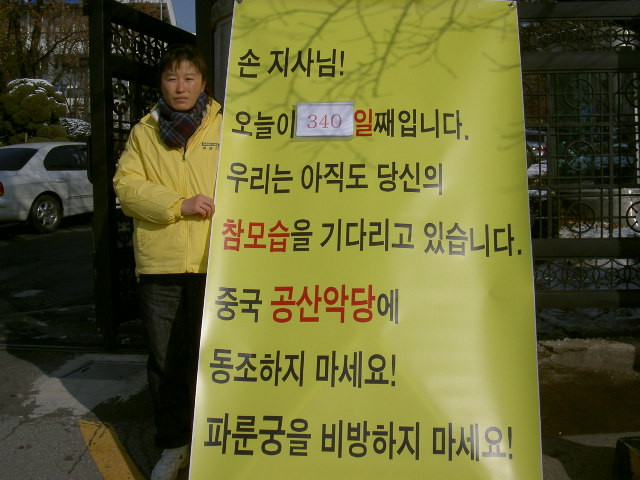 손 지사님!
오늘이 340 일째입니다.
우리는 아직도 당신의
참모습을 기다리고 있습니다.
중국 공산악당에
동조하지 마세요!
파룬궁을 비방하지 마세요!